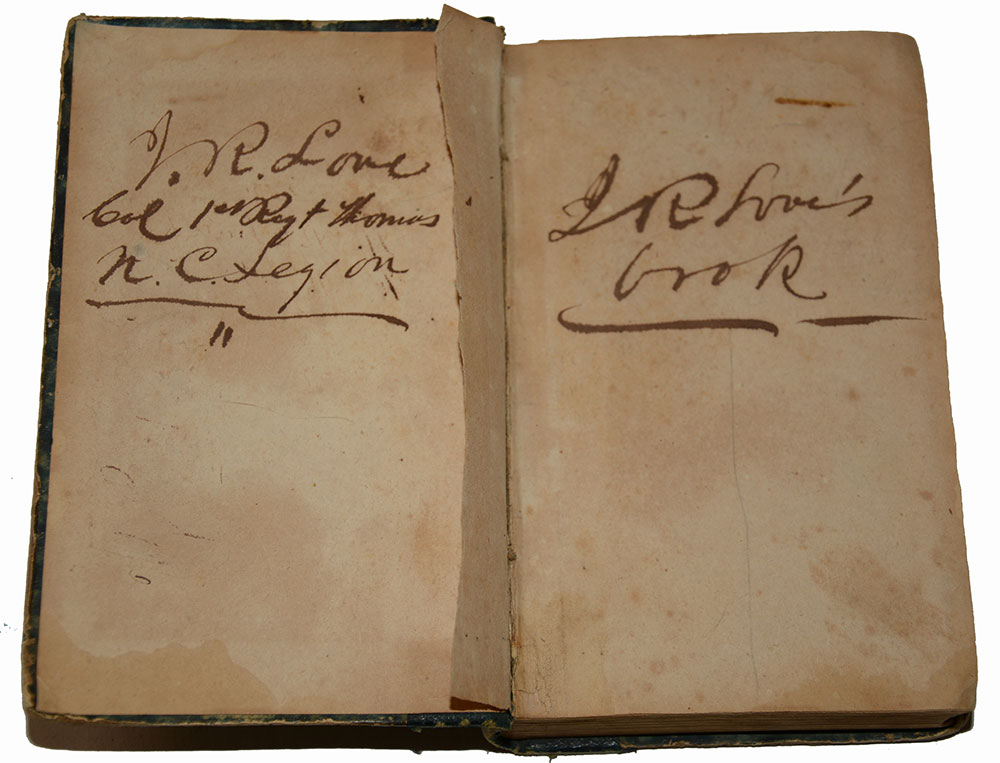 J. R. Love
Col 1st Regt Thomas
N. C. Legion
"
J R Love's
book